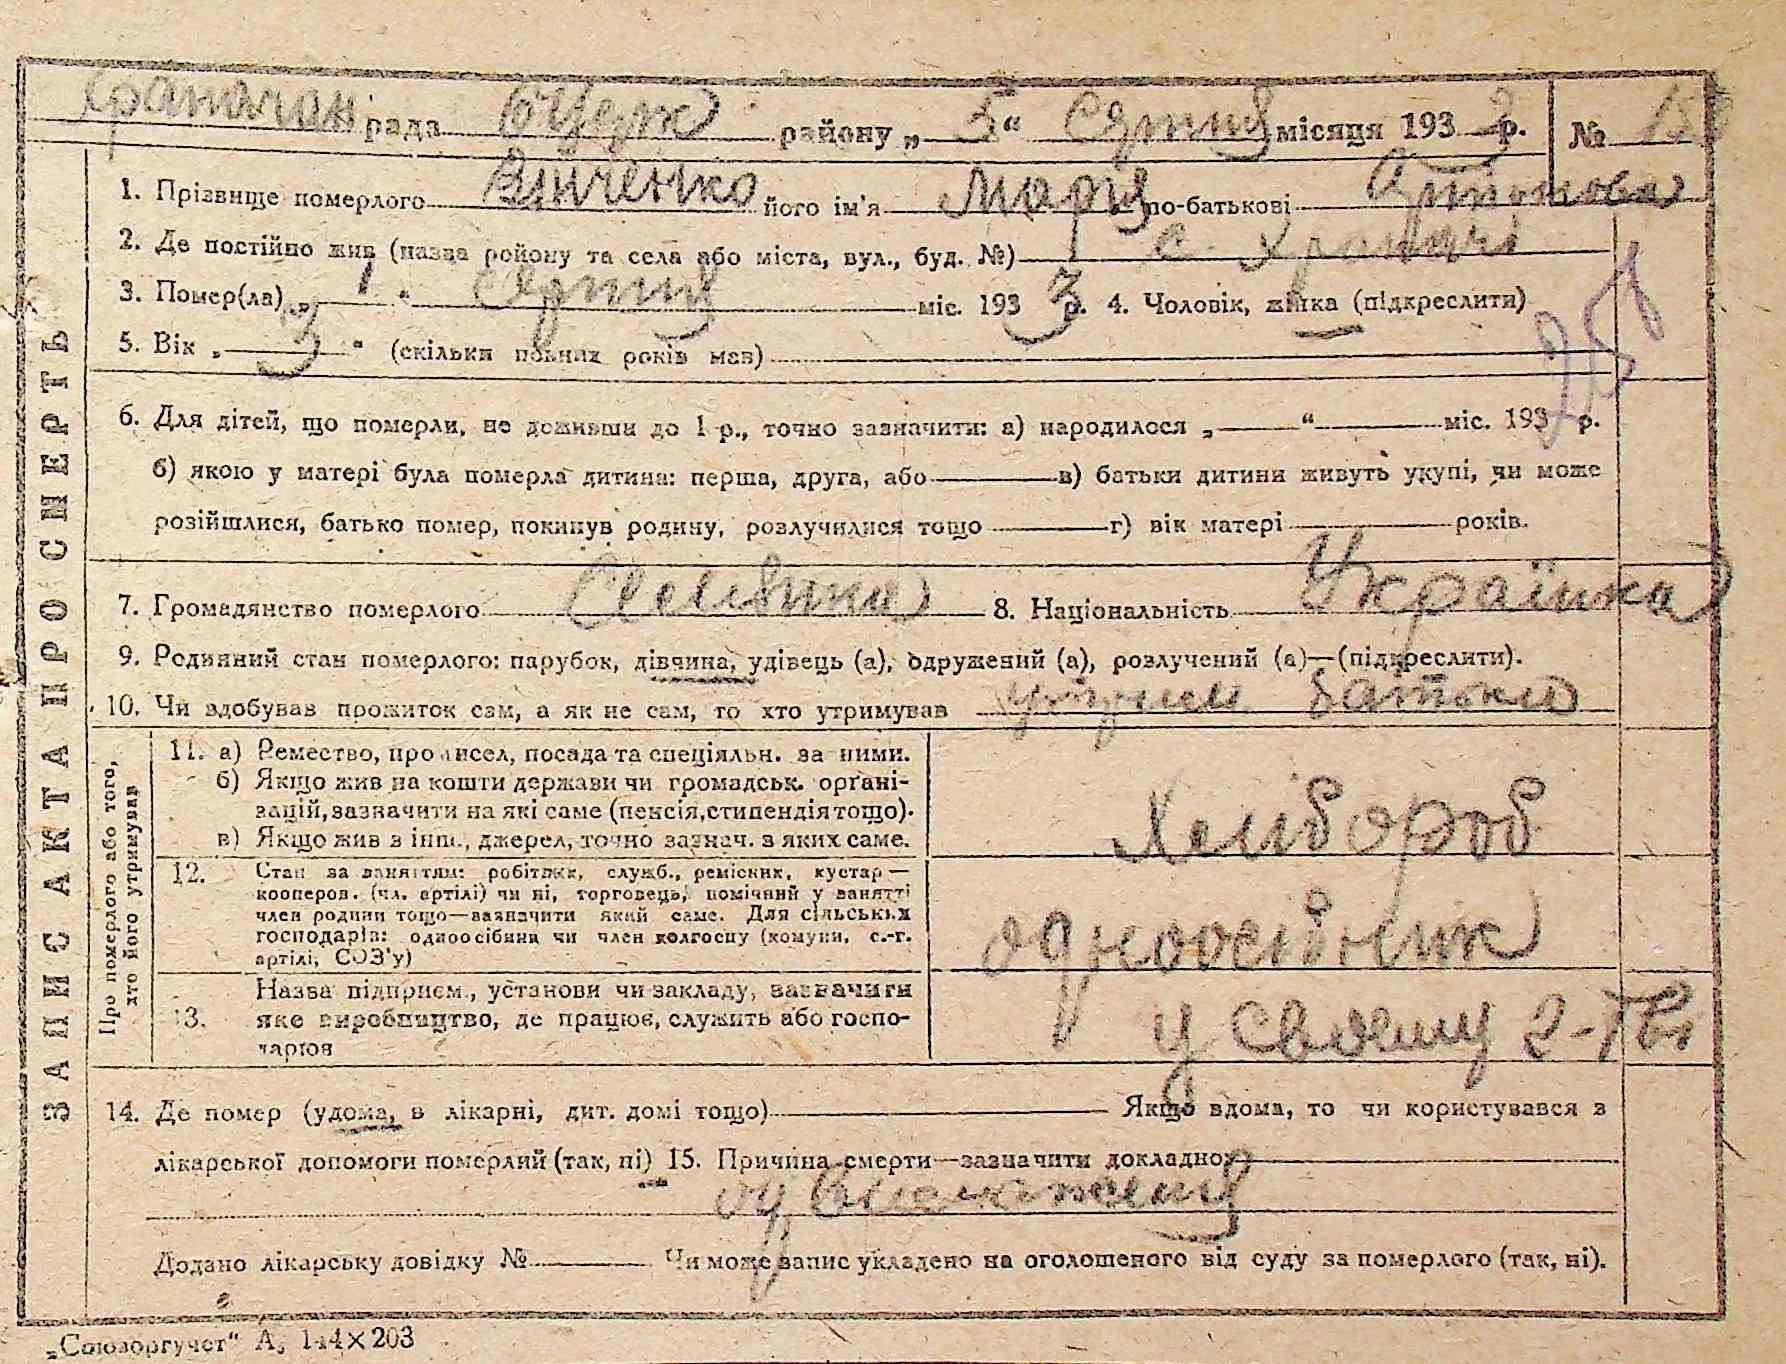 Храпачан рада район у „ 5 “ місяця 193 3 р. № 15
1. Прізвище померлого Вінченко його ім'я Марія по-батькові
2. Де постійно жив (назва району та села або міста, вул., буд. №) с. Храпачі
3. Помер(ла) „ 1 “ міс. 193 3 р. 4. Чоловік, жінка (підкреслити)
5. Вік „ 3 “ (скільки повних років мав)
6. Для дітей, що померли, не доживши до 1 р., точно зазначити: а) народилося „ “ міс. 193 р.
258
б) якою у матері була померла дитина: перша, друга, або в) батьки дитини живуть укупі, чи може
розійшлися, батько помер, покинув родину, розлучилися тощо г) вік матері років.
7. Громадянство померлого 8. Національність Українка
9. Родинний стан померлого: парубок, дівчина, удівець (а), одружений (а), розлучений (а)—(підкреслити).
10. Чи здобував прожиток сам, а як не сам, то хто утримував батьки
ЗАПИС АКТА ПРО СМЕРТЬ
Про померлого або того, хто його утримував
11. а) Ремество, промисел, посада та спеціяльн. за ними.
б) Якщо жив на кошти держави чи громадськ. органі-
зацій, зазначити на які саме (пенсія, стипендія тощо).
в) Якщо жив з інш., джерел, точно зазнач. з яких саме.
Хлібороб
12. Стан за заняттям: робітник, служб., ремісник, кустар—
кооперов. (чл. артілі) чи ні, торговець, помічний у занятті
член родини тощо—зазначити який саме. Для сільських
господарів: одноосібник чи член колгоспу (комуни, с.-г.
артілі, СОЗ'у)
одноосібник
13. Назва підприєм., установи чи закладу, зазначити
яке виробництво, де працює, служить або госпо-
дарює
у своєму г-тві
14. Де помер (удома, в лікарні, дит. домі тощо) Якщо вдома, то чи користувався з
лікарської допомоги померлий (так, ні) 15. Причина смерти—зазначити докладно:
од виснаження
Додано лікарську довідку № Чи може запис укладено на оголошеного від суду за померлого (так, ні).
„Союзоргучет“ А₅ 144×203